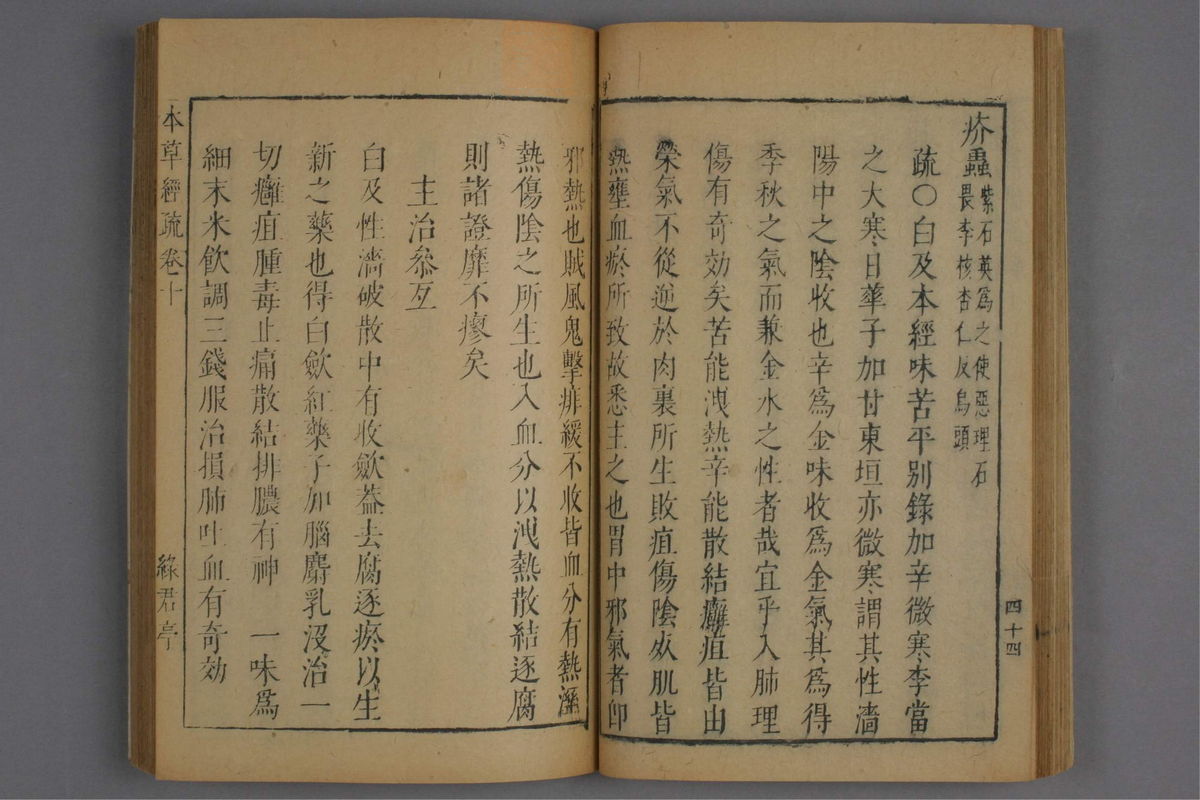 四十四
疥蟲紫石英爲之使惡理石
畏李核杏仁反烏頭
疏○白及本經味苦平别錄加辛微寒李當
之大寒日華子加甘東垣亦微寒謂其性濇
陽中之陰收也辛爲金味收爲金氣其爲得
季秋之氣而兼金水之性者哉宜乎入肺理
傷有奇効矣苦能洩熱辛能散結癰疽皆由
榮氣不從逆於肉裏所生敗疽傷陰死肌皆
熱壅血瘀所致故悉主之也胃中邪氣者卽
邪熱也賊風鬼擊痱緩不收皆血分有熱溼
熱傷陰之所生也入血分以洩熱散結逐腐
則諸證靡不瘳矣
主治參互
白及性濇破散中有收歛葢去腐逐瘀以生
新之藥也得白歛紅藥子加腦麝乳沒治一
切癰疽腫毒止痛散結排膿有神 一味爲
細末米飲調三錢服治損肺吐血有奇効
本草經疏卷十
綠君亭